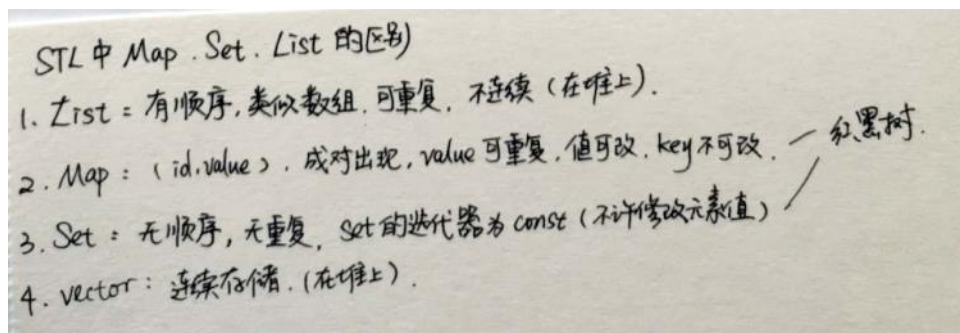 STL中 Map . Set . List 的区别
1. List : 有顺序, 类似数组, 可重复, 不连续 (在堆上).
2. Map : (id, value), 成对出现, value 可重复, 值可改, key不可改. — 红黑树.
3. Set : 无顺序, 无重复, set的迭代器为 const (不许修改元素值)
4. vector : 连续存储. (在堆上).